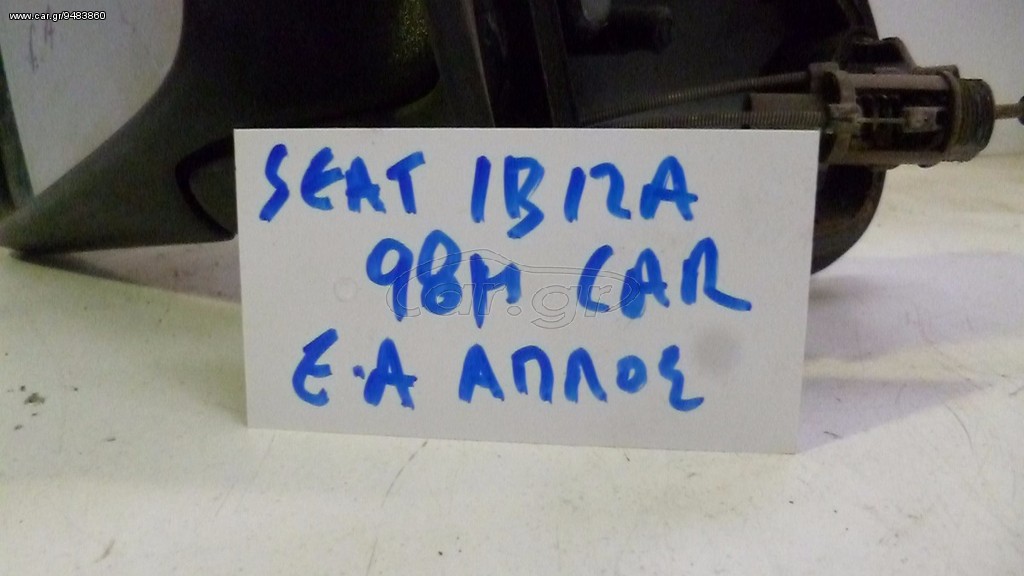 www.car.gr/9483860
SEAT IBIZA
98M CAR
car.gr
E.A ΑΠΛΟΣ